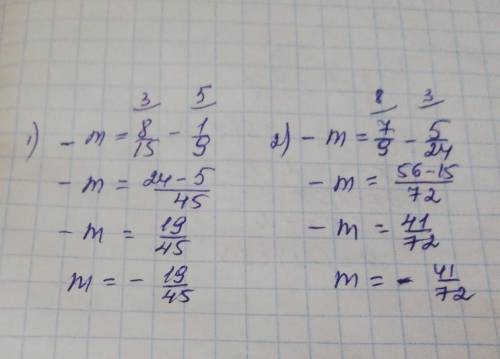 3 5
1) - m = 8/15 - 1/9
- m = 24 - 5/45
- m = 19/45
m = - 19/45
8 3
2) - m = 7/9 - 5/24
- m = 56 - 15/72
- m = 41/72
m = - 41/72